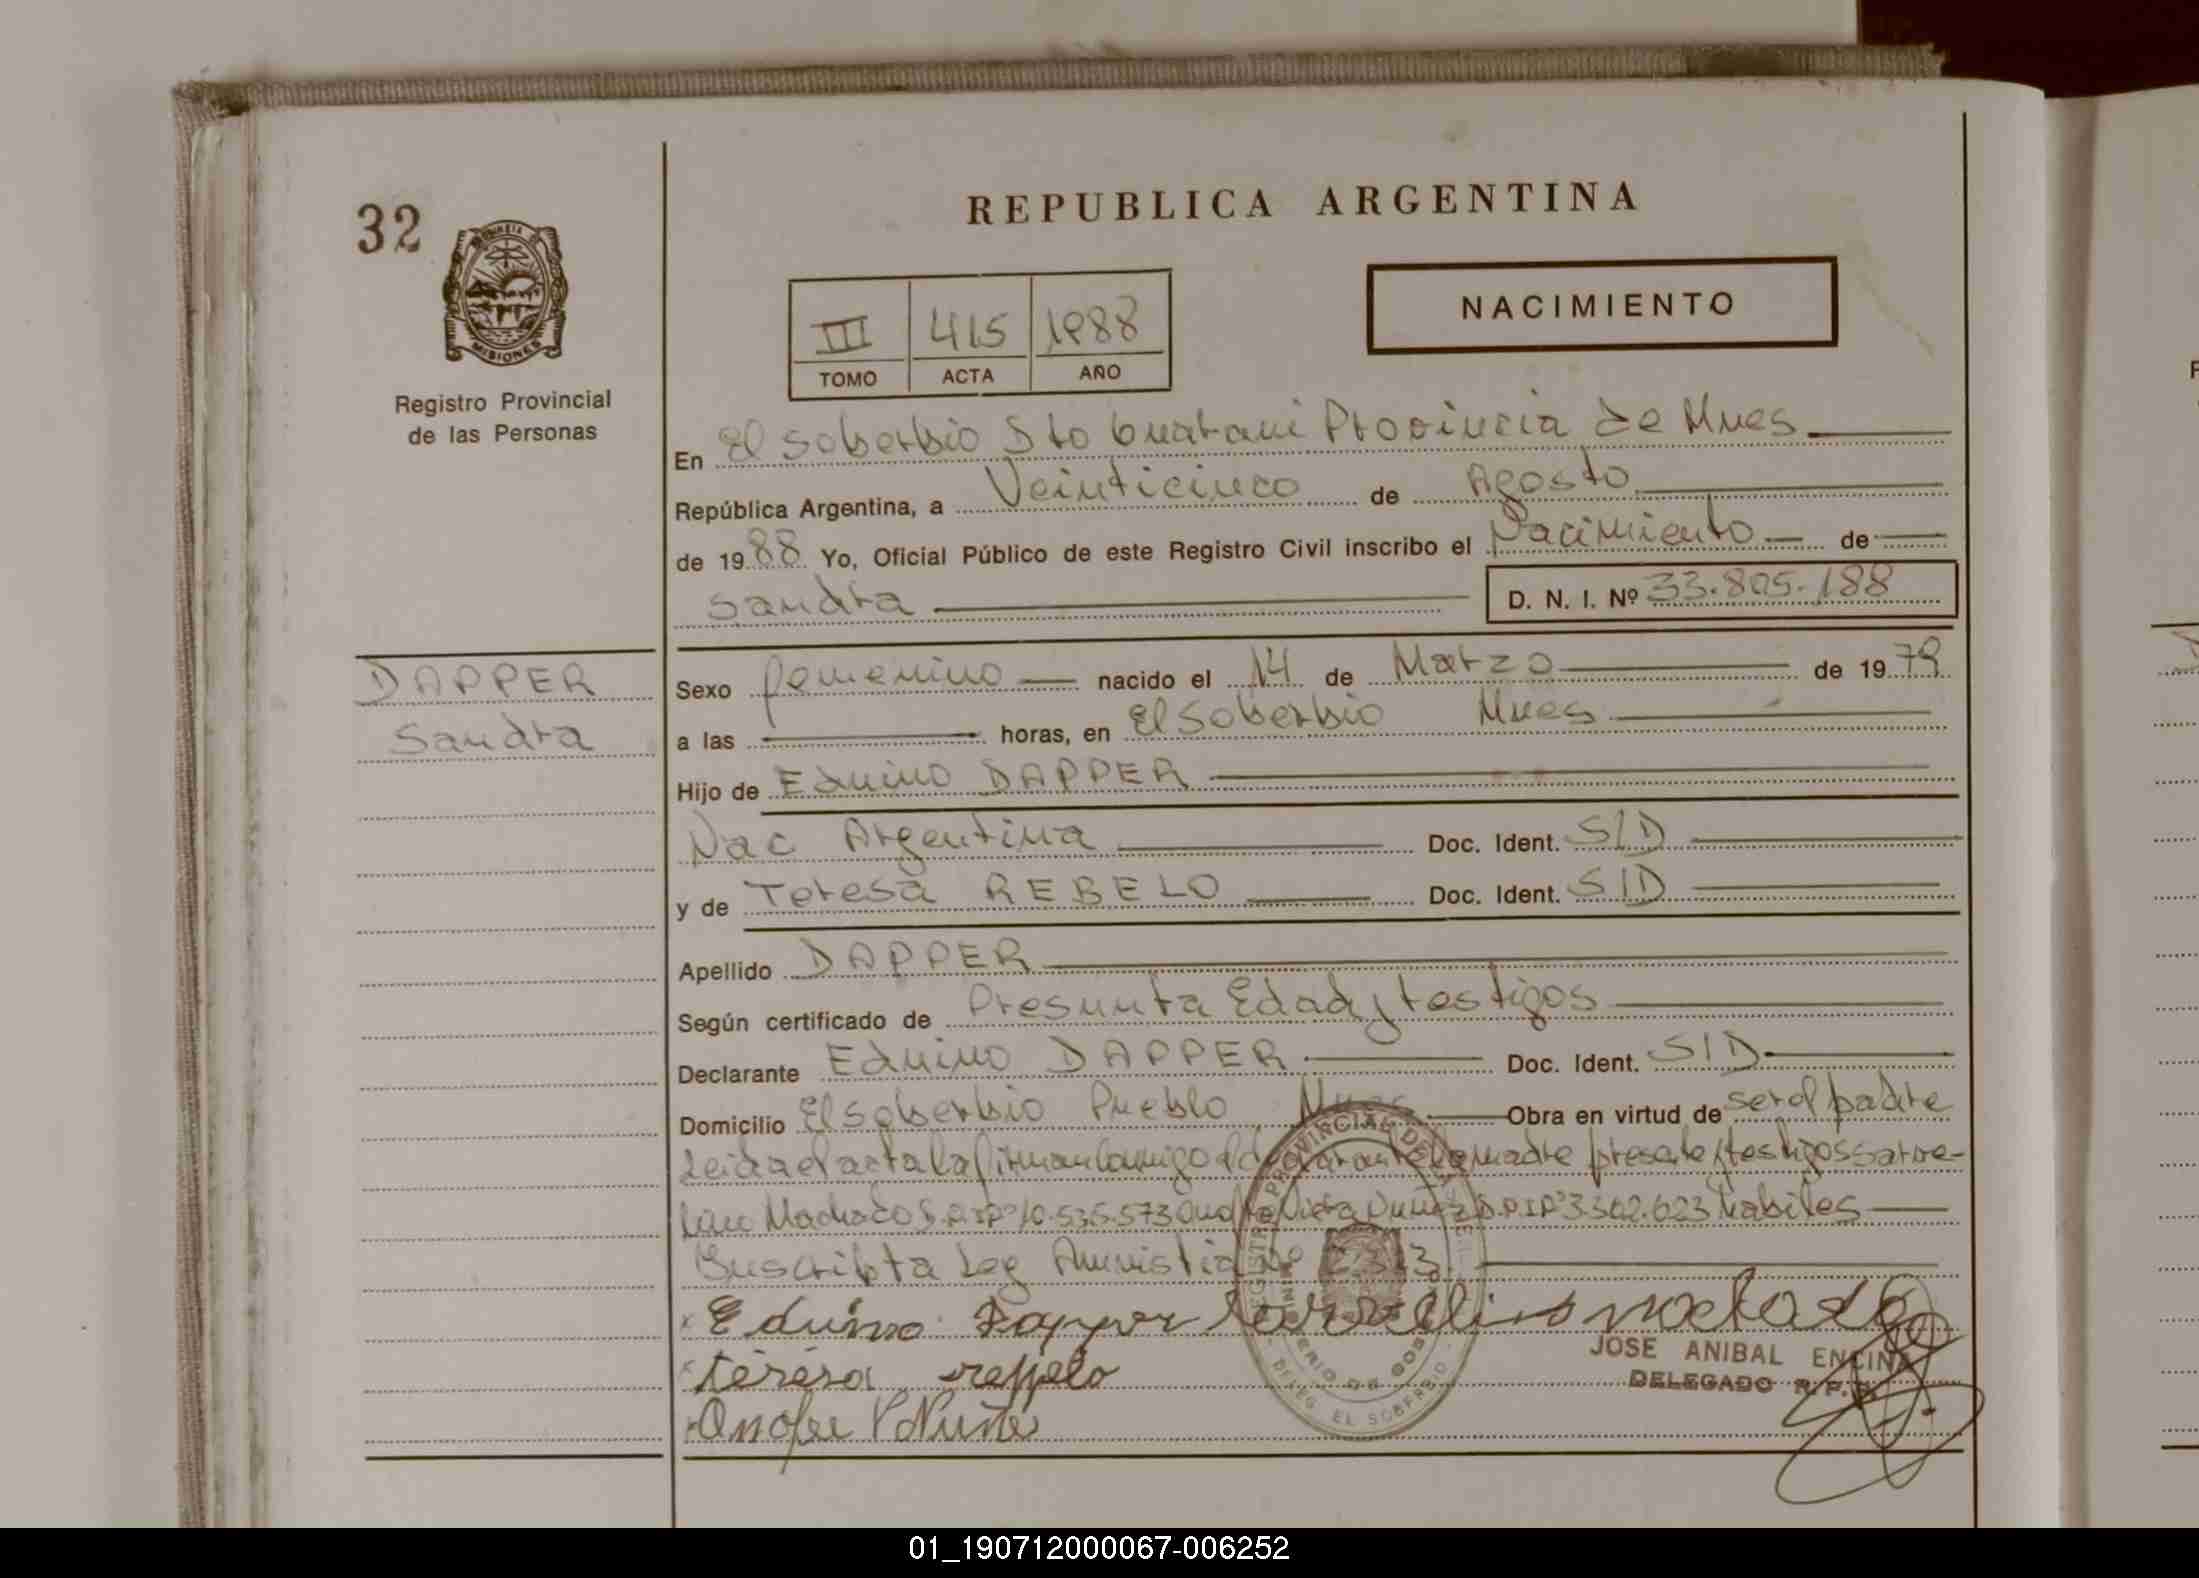 32
REPUBLICA ARGENTINA
NACIMIENTO
III 415 1988
TOMO ACTA AÑO
MISIONES
Registro Provincial
de las Personas
En El Soberbio Dto Guarani Provincia de Mnes
República Argentina, a Veinticinco de Agosto
de 1988 Yo, Oficial Público de este Registro Civil inscribo el Nacimiento de
Sandra
D. N. I. Nº 33.805.188
DAPPER
Sandra
Sexo femenino nacido el 14 de Marzo de 1979
a las horas, en El Soberbio Mnes
Hijo de Eduino DAPPER
Nac Argentina Doc. Ident. S/D
y de Teresa REBELO Doc. Ident. S/D
Apellido DAPPER
Según certificado de Presunta Edad y testigos
Declarante Eduino DAPPER Doc. Ident. S/D
Domicilio El Soberbio Pueblo Mnes Obra en virtud de ser el padre
Leida el acta la firman conmigo el declarante la madre presente y testigos
Machado 10.535.573 Nuñez 3.302.623 habiles
Suscripta Ley Amnistia Nº
Eduino Dapper
teresa reppelo
JOSE ANIBAL ENCINA
DELEGADO R.P.P.
REGISTRO PROVINCIAL DE
DELEG. EL SOBERBIO
01_190712000067-006252